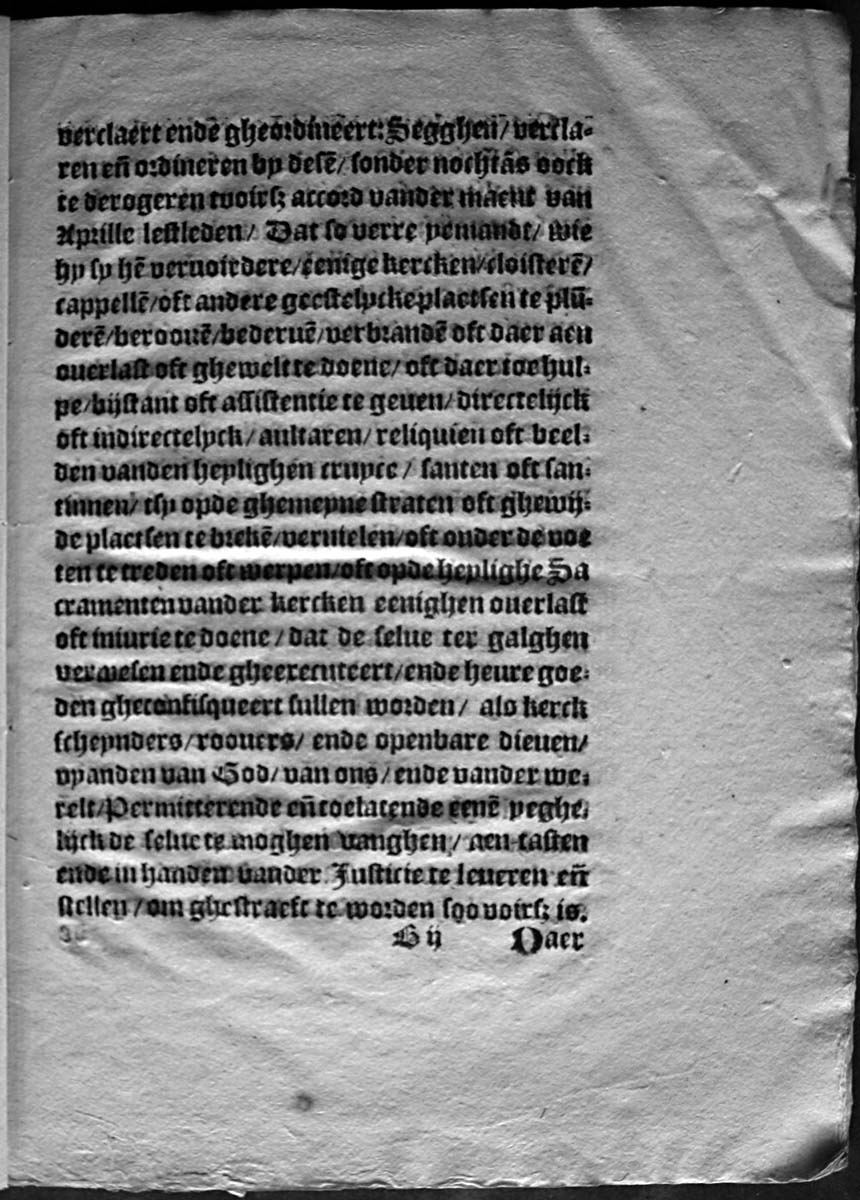 verclaert ende gheordineert: Segghen/ vercla-
ren eñ ordineren by desē/ sonder nochtās oock
te derogeren tvoirsz accord vander maent van
Aprille lestleden/ Dat so verre yemandt/ wie
hy sy hē vervoirdere/ eenige kercken/ cloisterē/
cappellē/ oft andere geestelycke plaetsen te plū-
derē/ beroouē/ bederuē/ verbrandē oft daer aen
ouerlast oft ghewelt te doene/ oft daer toe hul-
pe/ bijstant oft assistentie te geuen/ directelijck
oft indirectelyck/ aultaren/ reliquien oft beel-
den vanden heylighen cruyce/ santen oft san-
tinnen/ tsy opde ghemeyne straten oft ghewij-
de plaetsen te brekē/ vernielen/ oft onder de voe
ten te treden oft werpen/ oft opde heylighe Sa
cramenten vander kercken eenighen ouerlast
oft iniurie te doene/ dat de selue ter galghen
verwesen ende gheexecuteert/ ende heure goe-
den gheconfisqueert sullen worden/ als kerck
scheynders/ roouers/ ende openbare dieuen/
vyanden van God/ van ons/ ende vander we-
relt/ Permitterende eñ toelatende eenē yeghe-
lijck de selue te moghen vanghen/ aen tasten
ende in handen vander Justicie te leueren eñ
stellen/ om ghestraeft te worden soo voirsz is.
B ij Daer